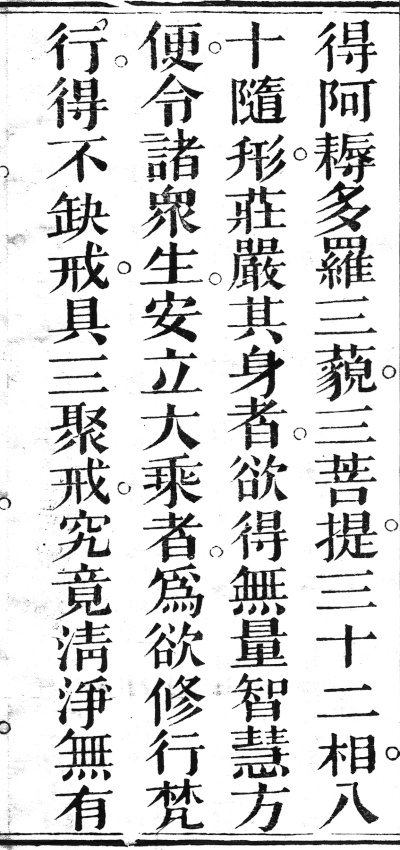 得阿耨多羅三藐三菩提三十二相八
十隨形莊嚴其身者欲得無量智慧方
便令諸衆生安立大乘者爲欲修行梵
行得不缺戒具三聚戒究竟淸淨無有